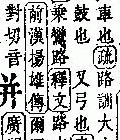 車也疏路訓大
鼓也又弓也
乗鸞路釋文路
前漢揚雄傳爾
對切音
并廣